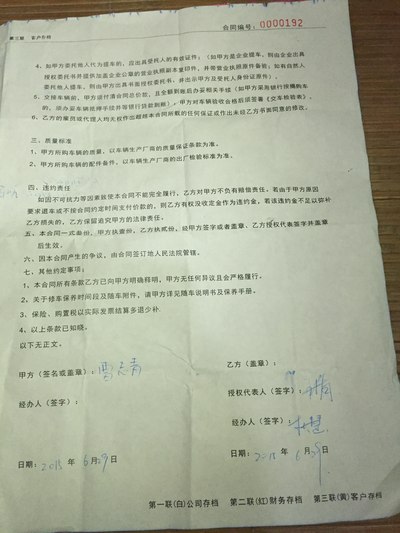 第三联 客户存档
合同编号：0000192
4、如甲方委托他人代为提车的，应出具受托人的有效证件；（如甲方是企业提车，则由企业出具
授权委托书并提供加盖企业公章的营业执照副本复印件，并带营业执照原件备验；如有自然人
委托他人提车，则由甲方出具书面授权委托书，并出示甲方及受托人身份证原件）。
5、交接车辆前，甲方须付清合同总价款，且全额到账后办妥相关手续（如甲方采用银行按揭购车
的，须办妥车辆抵押手续并等银行贷款到账）。甲方对车辆验收合格后须签署《交车检验表》。
6、乙方的雇员或代理人均无权作出超越本合同所载的任何保证或作出未经乙方书面同意的修改。
三、质量标准
1、甲方所购车辆的质量，以车辆生产厂商的质量保证条款为准。
2、甲方所购车辆的配件备件，以车辆生产厂商的出厂检验标准为准。
四、违约责任
如因不可抗力等因素致使本合同不能完全履行，乙方对甲方不负有赔偿责任，若由于甲方原因
要求退车或不按合同约定时间支付价款的，则乙方有权没收定金作为违约金，若该违约金不足以弥补
乙方损失的，乙方保留追究甲方的法律责任。
五、本合同一式叁份，甲方执壹份，乙方执贰份，经甲方签字或者盖章、乙方授权代表签字并盖章
后生效。
六、因本合同产生的争议，由合同签订地人民法院管辖。
七、其他约定事项：
1、本合同所有条款乙方已向甲方明确释明，甲方无任何异议且会严格履行。
2、关于修车保养时间段及随车附件，请甲方详见随车说明书及保养手册。
3、保险、购置税以实际发票结算多退少补.
4、以上条款已知晓。
以下无正文。
甲方（签名或盖章）：
乙方（盖章）：
授权代表人（签字）：
经办人（签字）：
经办人（签字）：
日期：2015 年 6 月29日
日期：2015 年 6 月29日
第一联(白)公司存档 第二联(红)财务存档 第三联(黄)客户存档